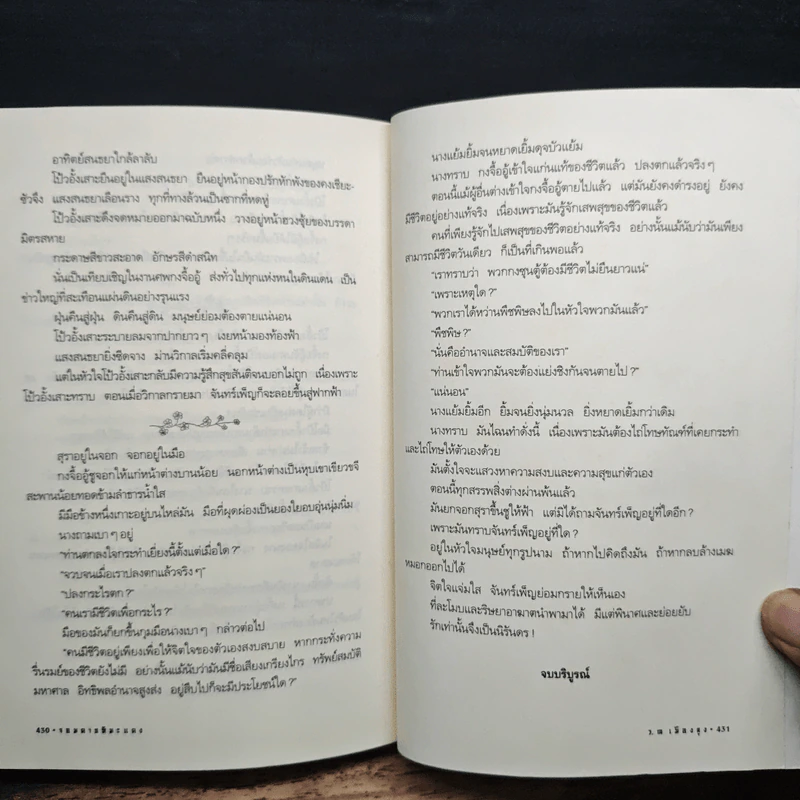 อาทิตย์สนธยาใกล้ลาลับ
โป้วอั้งเสาะยืนอยู่ในแสงสนธยา ยืนอยู่หน้ากองปรักหักพังของคงเซียะ-
ซัวจึง แสงสนธยาเลือนราง ทุกที่ทางล้วนเป็นซากที่หดหู่
โป้วอั้งเสาะดึงจดหมายออกมาฉบับหนึ่ง วางอยู่หน้าฮวงซุ้ยของบรรดา
มิตรสหาย
กระดาษสีขาวสะอาด อักษรสีดำสนิท
นั่นเป็นเทียบเชิญในงานศพกงจื้ออู้ ส่งทั่วไปทุกแห่งหนในดินแดน เป็น
ข่าวใหญ่ที่สะเทือนแผ่นดินอย่างรุนแรง
ฝุ่นคืนสู่ฝุ่น ดินคืนสู่ดิน มนุษย์ย่อมต้องตายแน่นอน
โป้วอั้งเสาะระบายลมจากปากยาวๆ เงยหน้ามองท้องฟ้า
แสงสนธยายิ่งซีดจาง ม่านวิกาลเริ่มคลี่คลุม
แต่ในหัวใจโป้วอั้งเสาะกลับมีความรู้สึกสุขสันติจนบอกไม่ถูก เนื่องเพราะ
โป้วอั้งเสาะทราบ ตอนเมื่อวิกาลกรายมา จันทร์เพ็ญก็จะลอยขึ้นสู่ฟากฟ้า
สุราอยู่ในจอก จอกอยู่ในมือ
กงจื้ออู้ชูจอกให้แก่หน้าต่างบานน้อย นอกหน้าต่างเป็นหุบเขาเขียวขจี
สะพานน้อยทอดข้ามลำธารน้ำใส
มีมือข้างหนึ่งเกาะอยู่บนไหล่มัน มือที่ผุดผ่องเป็นยองใยอบอุ่นนุ่มนิ่ม
นางถามเบาๆ อยู่
"ท่านตกลงใจกระทำเยี่ยงนี้ตั้งแต่เมื่อใด ?"
"จวบจนเมื่อเราปลงตกแล้วจริงๆ"
"ปลงกระไรตก ?"
"คนเรามีชีวิตเพื่อกระไร ?"
มือของมันก็ยกขึ้นกุมมือนางเบาๆ กล่าวต่อไป
"คนมีชีวิตอยู่เพียงเพื่อให้จิตใจของตัวเองสงบสบาย หากกระทั่งความ
รื่นรมย์ของชีวิตยังไม่มี อย่างนั้นแม้นับว่ามันมีชื่อเสียงเกรียงไกร ทรัพย์สมบัติ
มหาศาล อิทธิพลอำนาจสูงส่ง อยู่สืบไปก็จะมีประโยชน์ใด ?"
430 • จอมดาบหิมะแดง
นางแย้มยิ้มจนหยาดเยิ้มดุจบัวแย้ม
นางทราบ กงจื้ออู้เข้าใจแก่นแท้ของชีวิตแล้ว ปลงตกแล้วจริงๆ
ตอนนี้แม้ผู้อื่นต่างเข้าใจกงจื้ออู้ตายไปแล้ว แต่มันยังคงดำรงอยู่ ยังคง
มีชีวิตอยู่อย่างแท้จริง เนื่องเพราะมันรู้จักเสพสุขของชีวิตแล้ว
คนที่เพียงรู้จักไปเสพสุขของชีวิตอย่างแท้จริง อย่างนั้นแม้นับว่ามันเพียง
สามารถมีชีวิตวันเดียว ก็เป็นที่เกินพอแล้ว
"เราทราบว่า พวกกงซุนตู้ต้องมีชีวิตไม่ยืนยาวแน่"
"เพราะเหตุใด ?"
"พวกเราได้หว่านพืชพิษลงไปในหัวใจพวกมันแล้ว"
"พืชพิษ ?"
"นั่นคืออำนาจและสมบัติของเรา"
"ท่านเข้าใจพวกมันจะต้องแย่งชิงกันจนตายไป ?"
"แน่นอน"
นางแย้มยิ้มอีก ยิ้มจนยิ่งนุ่มนวล ยิ่งหยาดเยิ้มกว่าเดิม
นางทราบ มันไฉนทำดั่งนี้ เนื่องเพราะมันต้องไถ่โทษทัณฑ์ที่เคยกระทำ
และไถ่โทษให้ตัวเองด้วย
มันตั้งใจจะแสวงหาความสงบและความสุขแก่ตัวเอง
ตอนนี้ทุกสรรพสิ่งต่างผ่านพ้นแล้ว
มันยกจอกสุราขึ้นชูให้ฟ้า แต่มิได้ถามจันทร์เพ็ญอยู่ที่ใดอีก ?
เพราะมันทราบจันทร์เพ็ญอยู่ที่ใด ?
อยู่ในหัวใจมนุษย์ทุกรูปนาม ถ้าหากไปคิดถึงมัน ถ้าหากลบล้างเมฆ
หมอกออกไปได้
จิตใจแจ่มใส จันทร์เพ็ญย่อมกรายให้เห็นเอง
ที่ละโมบและริษยาอาฆาตนำพามาได้ มีแต่พินาศและย่อยยับ
รักเท่านั้นจึงเป็นนิรันดร !
จบบริบูรณ์
ว. ณ เมืองลุง • 431